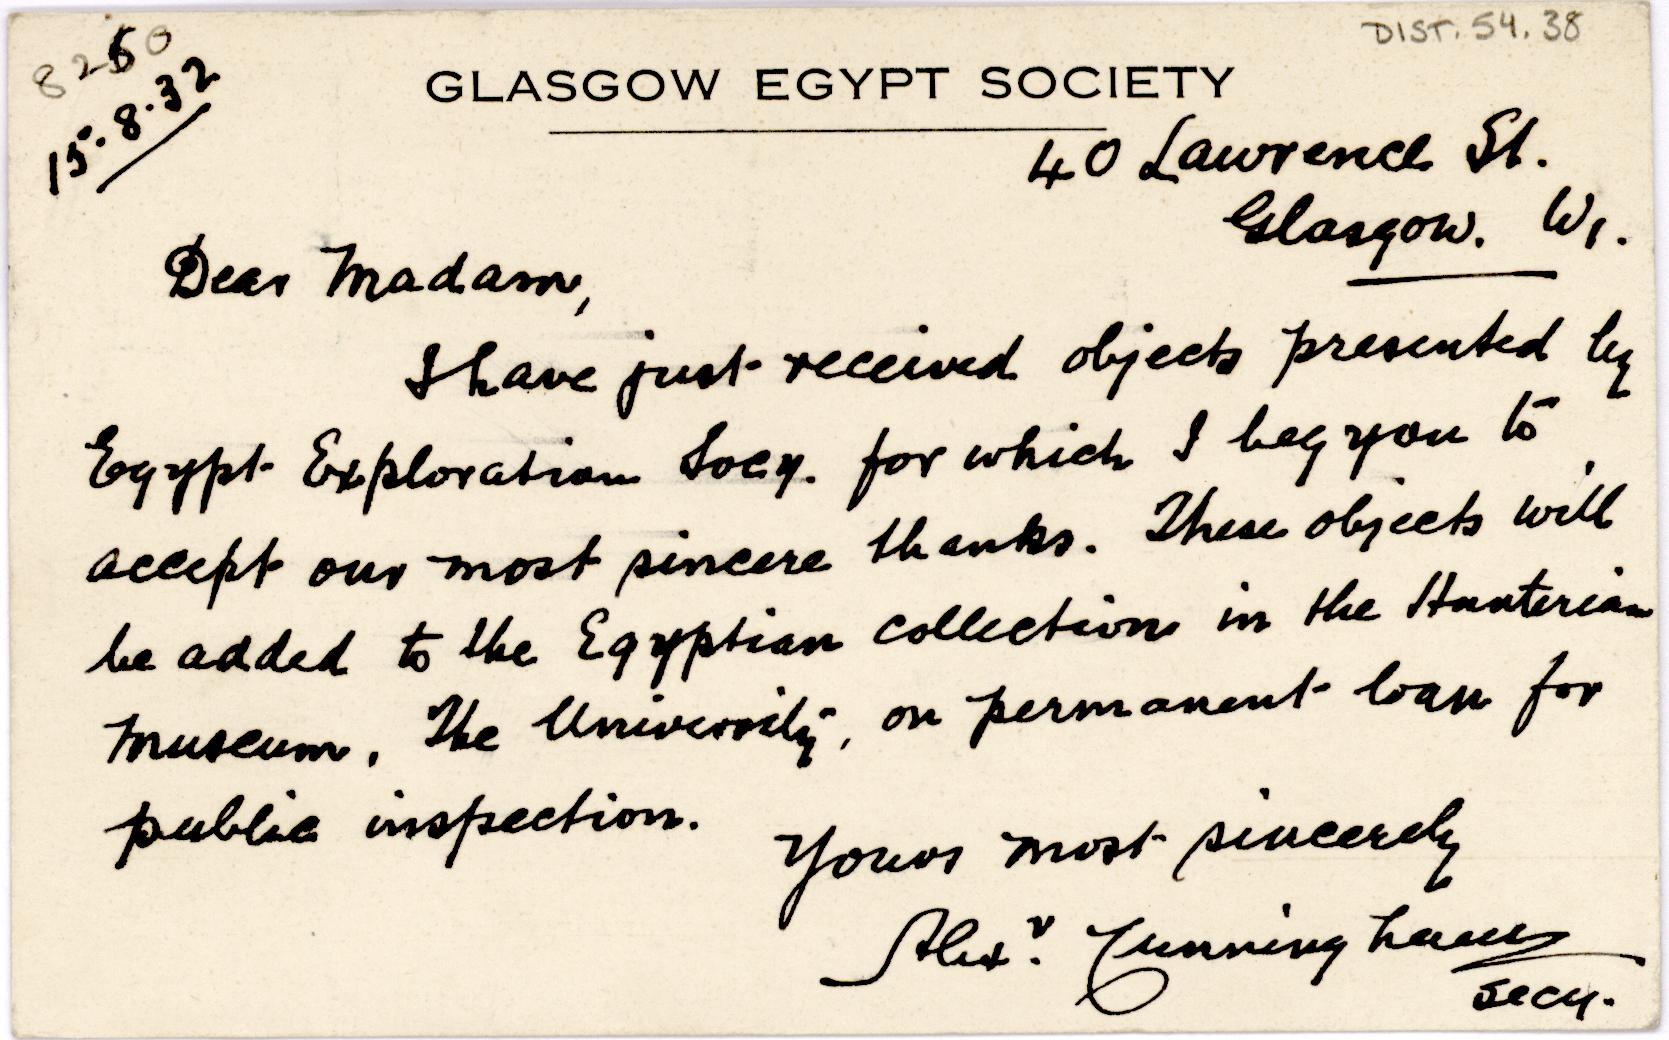 8260
15.8.32
DIST. 54. 38
GLASGOW EGYPT SOCIETY
40 Lawrence St.
Glasgow. W1.
Dear Madam,
I have just received objects presented by
Egypt Exploration Socy. for which I beg you to
accept our most sincere thanks. These objects will
be added to the Egyptian collection in the Hunterian
Museum, The University, on permanent loan for
public inspection.
Yours most sincerely
Alexr. Cunningham
Secy.